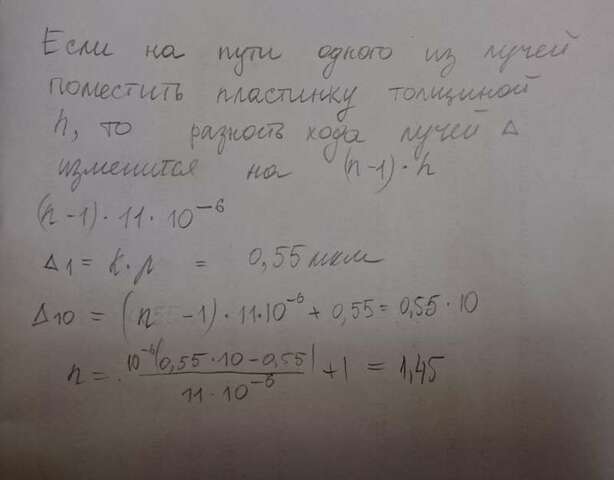 Если на пути одного из лучей
поместить пластинку толщиной
h, то разность хода лучей Δ
изменится на (n-1)·h
(n-1)·11·10⁻⁶
Δ1 = k·λ = 0,55 мкм
Δ10 = (n -1)·11·10⁻⁶ + 0,55 = 0,55·10
n = 10⁻⁶(0,55·10-0,55) / 11·10⁻⁶ +1 = 1,45